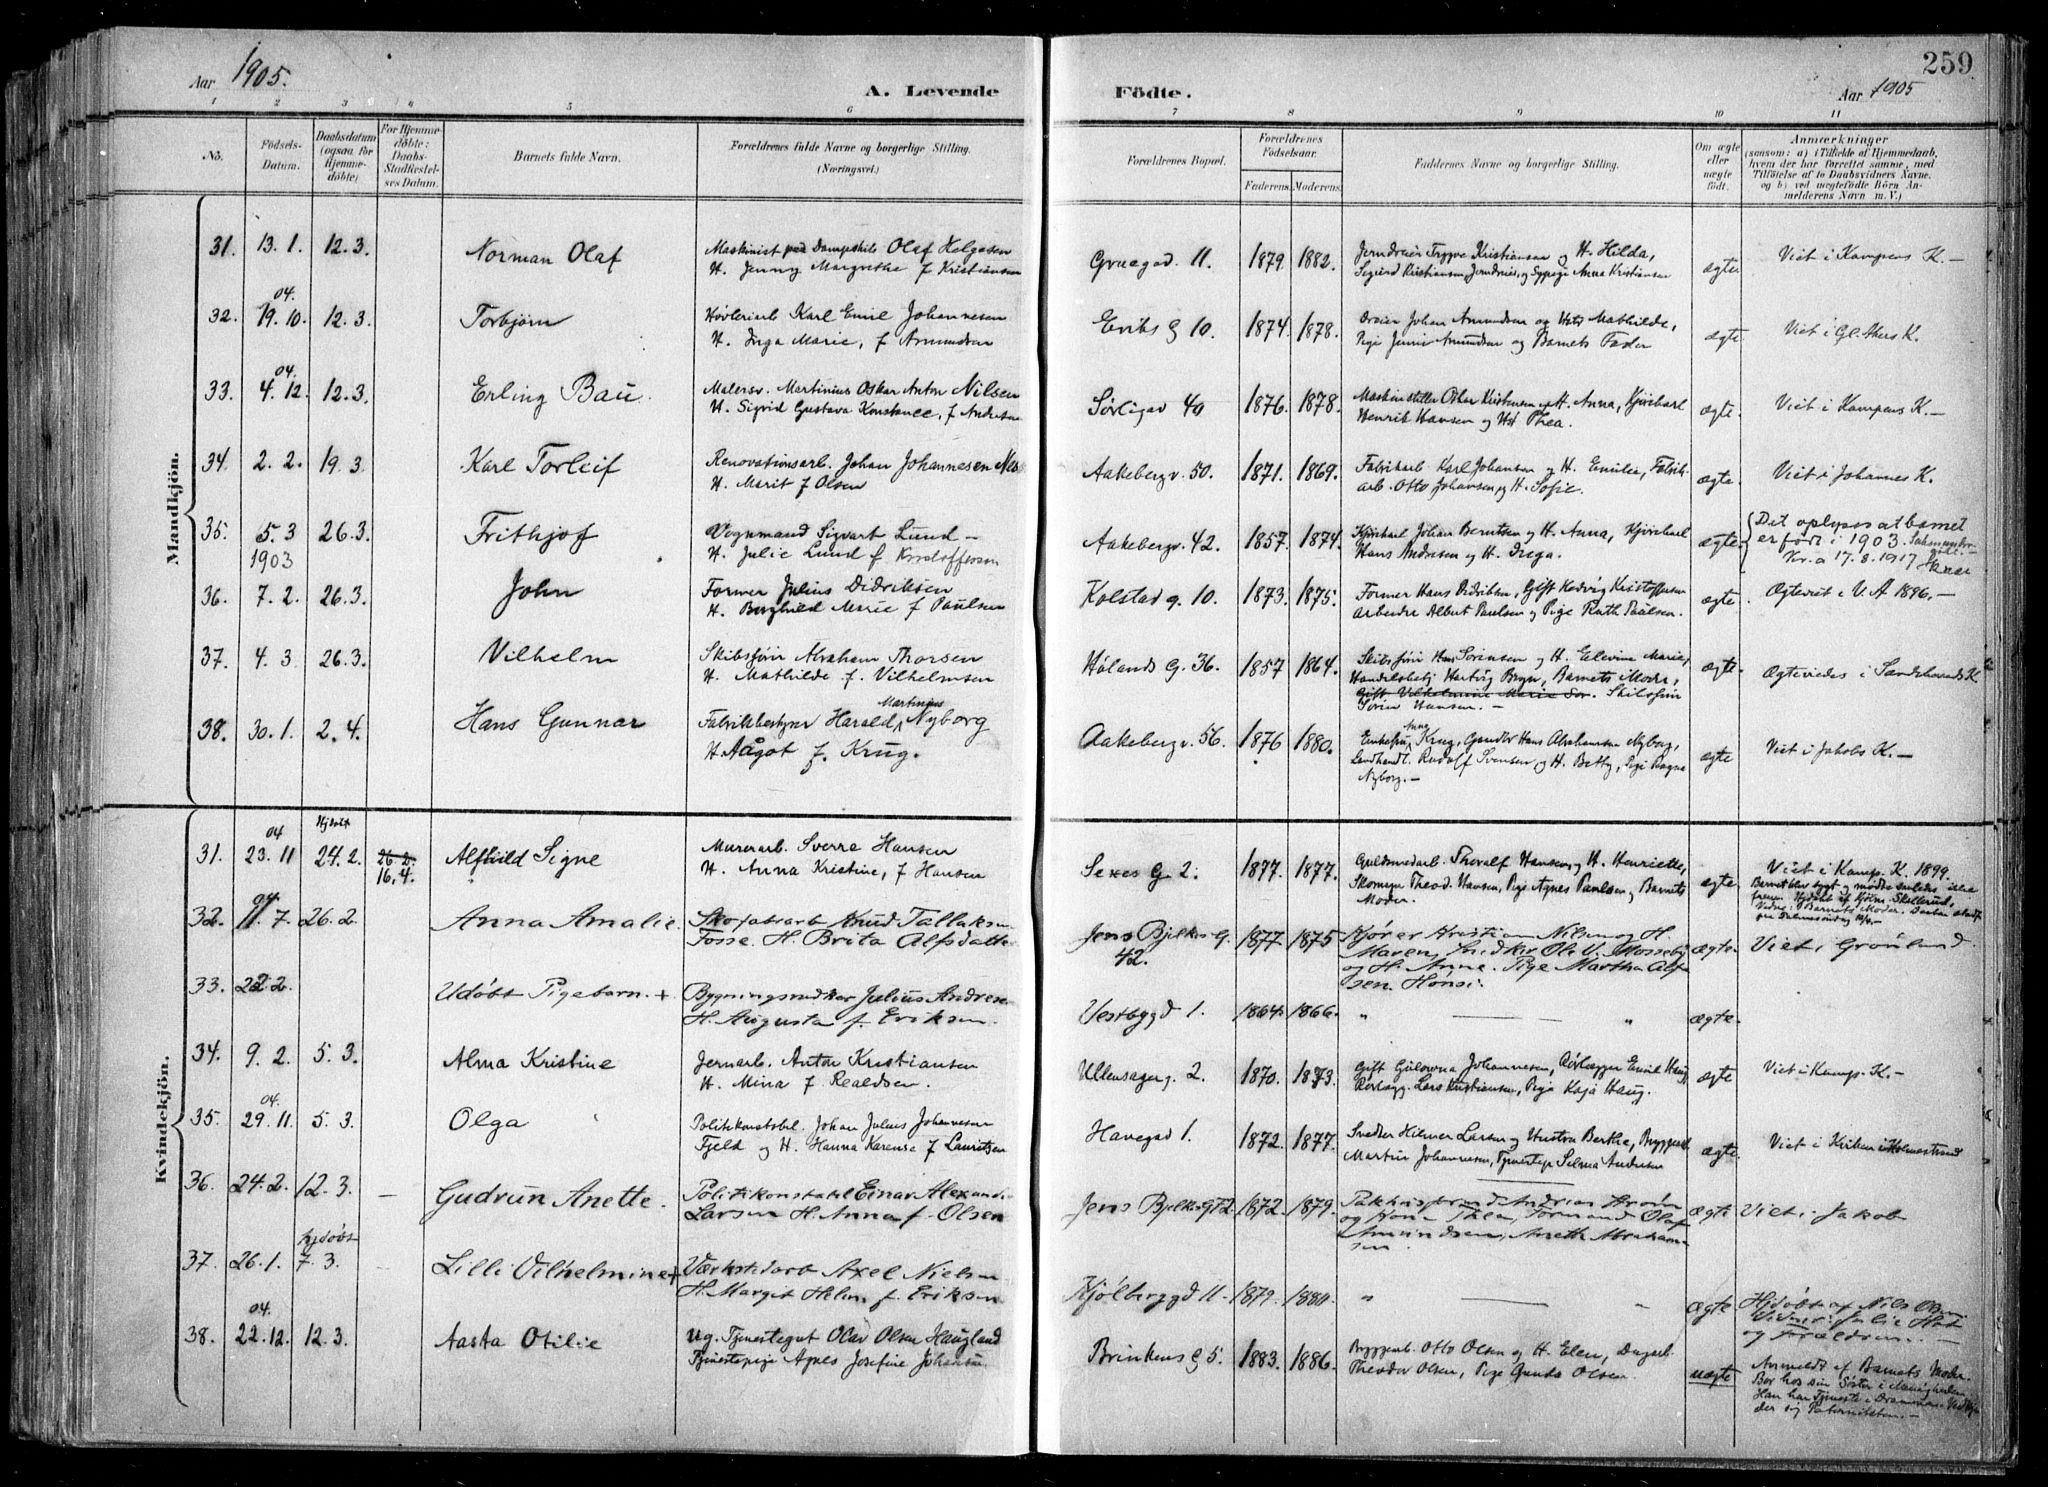 259
Aar 1905.
A. Levende
Födte.
Aar 1905
1 2 3 4 5 6 7 8 9 10 11
No.
Födsels-Datum.
Daabsdatum (ogsaa for Hjemmedöbte)
For Hjemmedöbte: Daabs-Stadfæstelses Datum.
Barnets fulde Navn.
Forældrenes fulde Navne og borgerlige Stilling. (Næringsvei.)
Forældrenes Bopæl.
Forældrenes Födselsaar.
Faderens. Moderens.
Faddernes Navne og borgerlige Stilling.
Om ægte eller uægte födt.
Anmærkninger
(saasom: a) i Tilfælde af Hjemmedaab, hvem der har forrettet samme, med Tilföielse af to Daabsvidners Navne, og b) ved uægtefödte Börn Anmelderens Navn m. V.)
Mandkjön.
31. 13. 1. 12. 3. Norman Olaf Maskinist paa Dampskib Olaf Helgesen
H. Jenny Margrethe f Kristiansen
Gruegad. 11. 1879. 1882. Jerndreier Trygve Kristiansen og H. Hilda,
Sigurd Kristiansen Jerndreier, og Sypige Anna Kristiansen ægte Viet i Kampens K. –
04.
32. 19. 10. 12. 3. Torbjørn Høvleriarb. Karl Emil Johannesen
H. Inga Marie, f Amundsen
Eriks G 10. 1874. 1878. Dreier Johan Amundsen og Hst Mathilde,
Pige Jenny Amundsen og Barnets Fader ægte Viet i Gl. Akers K.
04.
33. 4. 12. 12. 3. Erling Bau. Malersv. Martinius Oskar Anton Nilsen
H. Sigrid Gustava Konstance, f Andersen
Sørligad 4a 1876. 1878. Maskinstiller Oskar Kristensen og H. Anna, Kjørekarl
Henrik Hansen og Hst Thea. ægte. Viet i Kampens K. –
34. 2. 2. 19. 3. Karl Torleif Renovationsarb. Johan Johannesen
H. Marit f Olsen
Aakebergv. 50. 1871. 1869. Fabrikarb. Karl Johansen og H. Emilie, Fabrik-
arb. Otto Johansen, og H. Sofie. ægte. Viet i Johannes K.
35. 5. 3 26. 3. Frithjof Vognmand Sigvart Lund –
1903 H. Julie Lund f Kristoffersen
Aakebergv. 42. 1857. 1874. Kjørekarl Johan Berntsen og H. Anna, Kjørekarl
Hans Andresen og H. Inga. ægte. Det oplyses at barnet
er født i 1903.
Kr.a 17. 8. 1917
36. 7. 2. 26. 3. John Former Julius Didriksen
H. Borghild Marie f Paulsen
Kolstad g. 10. 1873. 1875. Former Hans Didriksen, Gift Hedvig Kristoffersen
Arbeidre Albert Paulsen og Pige Ruth Paulsen. ægte. Ægteviet i V. A 1896. –
37. 4. 3 26. 3. Vilhelm Skibsfører Abraham Thorsen
H. Mathilde f. Vilhelmsen
Hølands G. 36. 1857 1864. Skibsfører Hans Sørensen og H. Elevine Marie,
Handelsbetj Hartvig Bryn, Barnets Moder,
Gift Vilhelmine Marie Sør. Skibsfører
Sørin Hansen. – ægte. Ægteviedes i
38. 30. 1. 2. 4. Hans Gunnar Fabrikbestyrer Harald Martinius Nyborg
H. Aågot f. Krug.
Aakebergv. 56. 1876 1880. Enkefru Anna Krug, Hans Abrahamsen Nyborg,
Landhandl. Rudolf Svensen, og H. Betty, Pige Ragna
Nyborg. – ægte Viet i Jakobs K. –
Kvindekjön.
04 Hjdøbt
31. 23. 11 24. 2. 26. 2. 16. 4. Alfhild Signe Murerarb. Sverre Hansen
H. Anna Kristine, f Hansen
Sexes G. 2. 1877. 1877. Guldsmedarb. Thoralf Hansen og H. Henriette,
Skomgr Theod. Hansen, Pige Agnes Paulsen og Barnets
Moder. ægte. Viet i Kamp. K. 1899.
04.
32. 11. 7. 26. 2. Anna Amalie. Skofabarb Knud Tallaksen
Fosse. H. Brita Alfsdatter
Jens Bjelkes G.
42. 1877. 1875 Kjører Kristian Nilsen og H.
Maren, Snidker Ole V. Mosseby
og H. Anne. Pige Martha Alf-
sen Hønsi. ægte. Viet i Grønland.
33. 22. 2. Udøbt Pigebarn. + Bygningssnedker Julius Andresen
H. Augusta f. Eriksen.
Vestbygd 1. 1864. 1866. " — " ægte.
34. 9. 2. 5. 3. Alma Kristine Jernarb. Anton Kristiansen
H. Mina f Realdsen.
Ullensagerg. 2. 1870. 1873. Gift Gulovna Johannesen, Rørlægger Emil Haug,
Rørlægg. Lars Kristiansen, Pige Kaja Haug. ægte Viet i Kamp. K. –
04.
35. 29. 11. 5. 3. Olga Politikonstabel. Johan Julius Johannesen
Fjeld og H. Hanna Karense f Lauritzen
Havegad 1. 1872. 1877. Snedker Hilmer Larsen og Hustru Berthe, Bryggearb
Martin Johannesen, Tjenestepige Selma Andersen ægte. Viet i Kirken i Holmestrand
36. 24. 2. 12. 3. – Gudrun Anette. Politikonstabel Einar Alexander
Larsen H. Anna f. Olsen
Jens Bjelkes G 72 1872. 1879. Pakhusformand Andreas
og Kone Thea, Formand Olaf
Amundsen, Anette Abraham-
sen. ægte Viet i Jakob
hjdøbt
37. 26. 1. 7. 3. – Lilli Vilhelmine + Værkstedarb Axel Nielsen
H. Margit Helm f. Eriksen
Kjølberggd 11. 1879. 1880. " — " ægte Hjdøbt af Nils
Vidner: Julie
og Forældrene. –
04.
38. 22. 12. 12. 3. Aasta Otilie Ug. Tjenestegut Olav Olsen Haugland
Tjenestepige Agnes Josefine Johansen
Brinkens G 5. 1883. 1886. Bryggearb. Otto Olsen og H. Elen, Dagarb.
Theodor Olsen, Pige Gunda Olsen. uægte Anmeldt af Barnets Moder.
Bor hos sin Søster i Menigheden.
Han har Tjeneste i Drammen. Vedkjen-
der sig Paterniteten. –